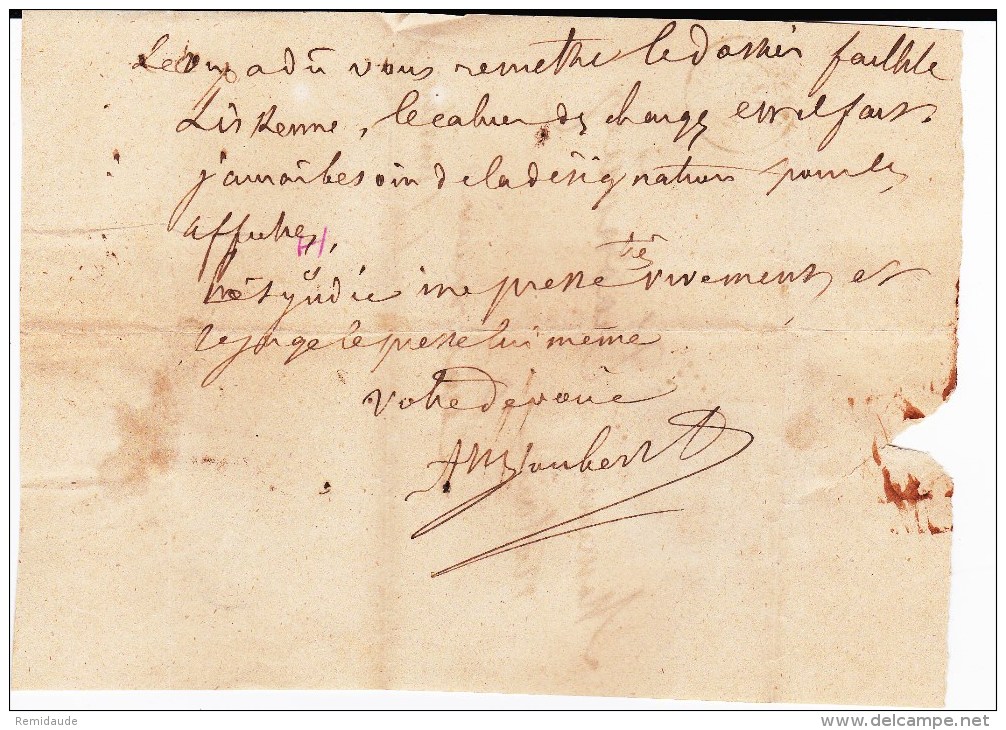 a dû vous remettre le dossier faillite
le cahier des charges est il fait.
j'aurai besoin de la désignation pour les
affiches,
Le Syndic me presse très vivement et
le juge le presse lui même
Votre dévoué
Joubert
Remidaude
www.delcampe.net